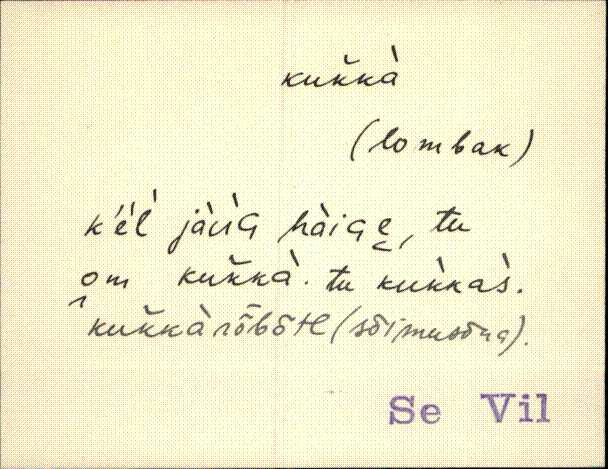 kuk̆kà
(lombak)
k'él' jàl'ɢ hàiɢe̬, tu
o̭m kuk̆kà. tu kuk̀kas̀.
kuk̆kà rõbõtʟ (sõimusõna).
Se Vil